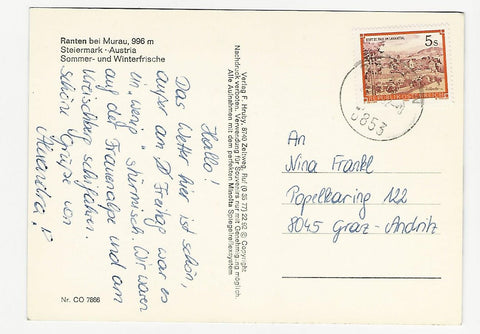 Ranten bei Murau, 996 m
Steiermark - Austria
Sommer- und Winterfrische
Hallo!
Das Wetter hier ist schön,
außer am Freitag war es
ein "wenig" stürmisch. Wir waren
auf der Frauenalpe und am
Kreischberg schifahren.
Schöne Grüße von
Alexandra
Nr. CO 7866
Verlag F. Hruby, 8740 Zeltweg, Ruf (0 35 77) 22 92 © Copyright
Nachdruck verboten. Verwendung für Souvenirs nur mit Genehmigung möglich.
Alle Aufnahmen mit dem perfekten Minolta Spiegelreflexsystem
STIFT ST. PAUL IM LAVANTTAL
5 S
REPUBLIK ÖSTERREICH
8853
An
Nina Frankl
Popelkaring 122
8045 Graz-Andritz